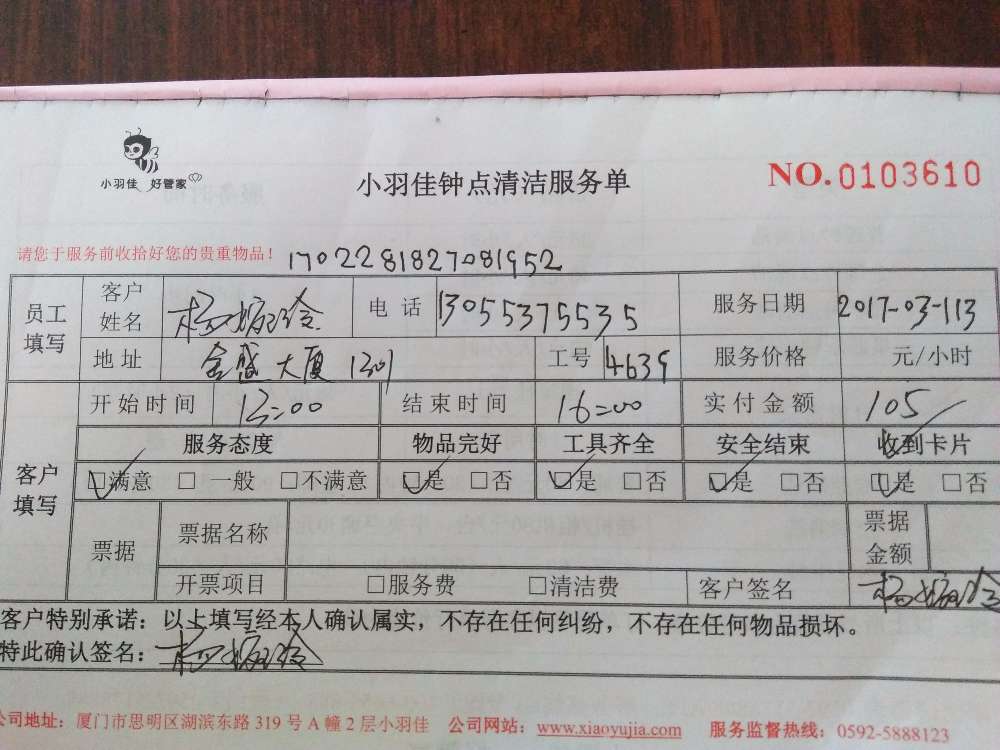 小羽佳 好管家
小羽佳钟点清洁服务单
NO.0103610
请您于服务前收拾好您的贵重物品！ 1702281827081952
员工填写 客户姓名 杨 电话 13055375535 服务日期 2017-03-113
地址 金盛大厦 1301 工号 4639 服务价格 元/小时
客户填写 开始时间 13=00 结束时间 16=00 实付金额 105
服务态度 物品完好 工具齐全 安全结束 收到卡片
☑满意 □ 一般 □不满意 ☑是 □否 ☑是 □否 ☑是 □否 ☑是 □否
票据 票据名称 票据金额
开票项目 □服务费 □清洁费 客户签名 杨
客户特别承诺：以上填写经本人确认属实，不存在任何纠纷，不存在任何物品损坏。
特此确认签名： 杨
公司地址：厦门市思明区湖滨东路 319 号 A 幢 2 层小羽佳 公司网站：www.xiaoyujia.com 服务监督热线：0592-5888123